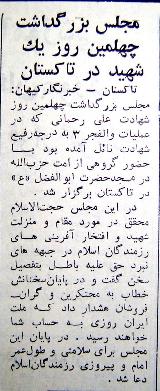 مجلس بزرگداشت
چهلمین روز یك
شهید در تاکستان
تاکستان - خبرنگارکیهان:
مجلس بزرگداشت چهلمین روز
شهادت علی رحمانی که در
عملیات والفجر ۳ به درجه‌رفیع
شهادت نائل آمده بود با
حضور گروهی از امت حزب‌الله
در مسجدحضرت ابوالفضل «ع»
در تاکستان برگزار شد.
در این مجلس حجت‌الاسلام
محقق در مورد مقام و منزلت
شهید و افتخار آفرینی های
رزمندگان اسلام در جبهه های
نبرد حق علیه باطل بتفصیل
سخن گفت و در پایان‌سخنانش
خطاب به محتکرین و گران-
فروشان هشدار داد که ملت
ایران روزی به حساب شما
خواهند رسید. در پایان این
مجلس برای سلامتی و طول‌عمر
امام و پیروزی رزمندگان‌اسلام
دعا شد.